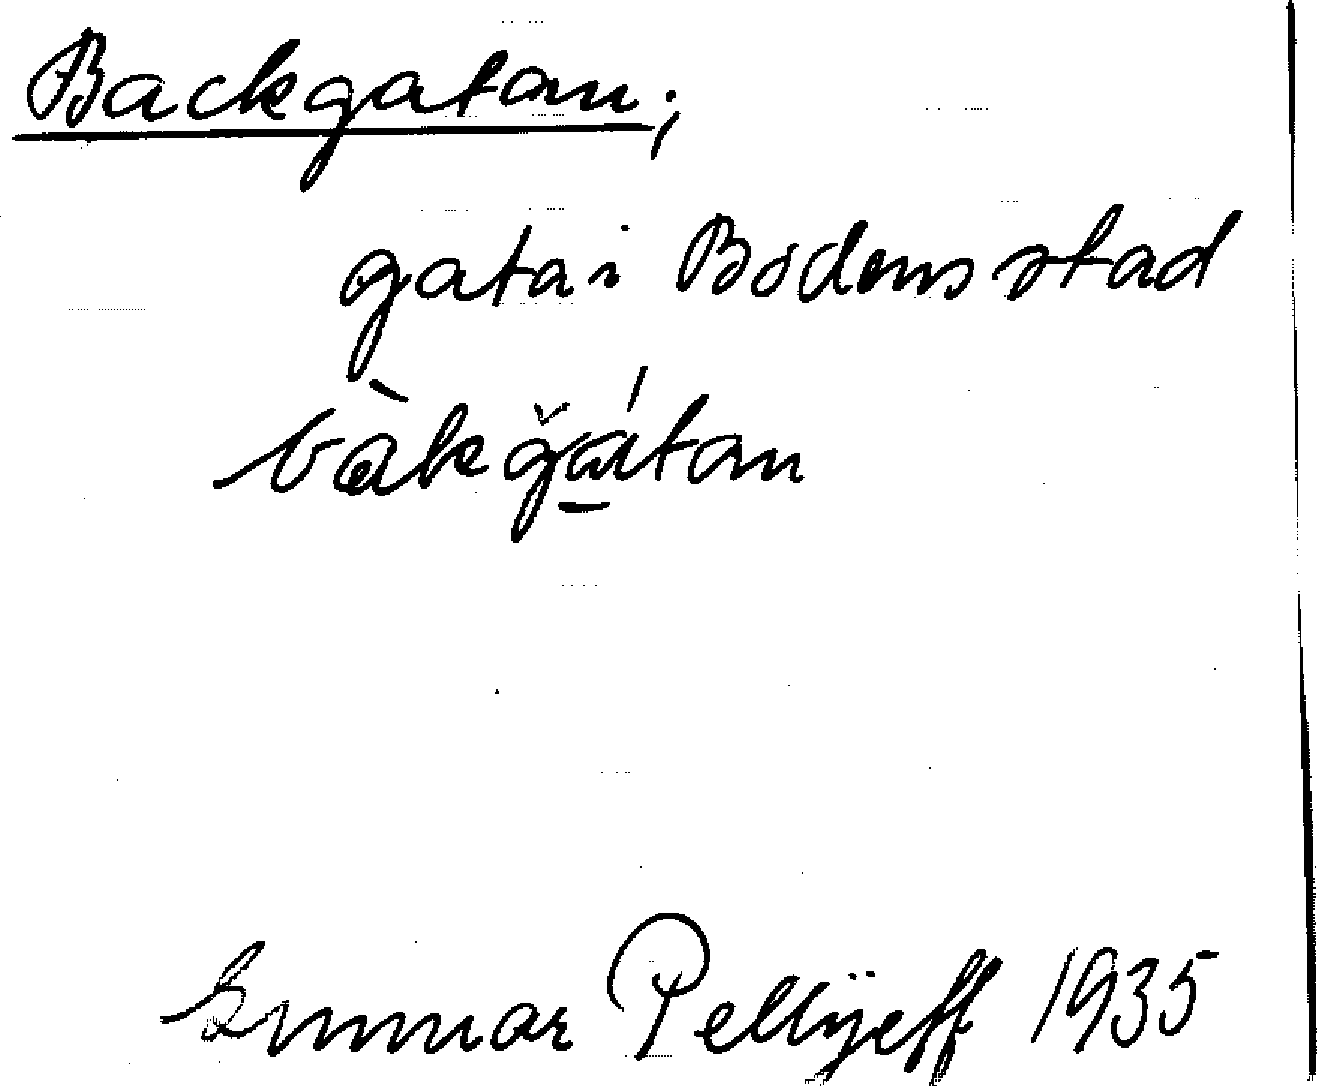 Backgatan;
gata i Bodens stad
bàkğátan
Gunnar Pellijeff 1935